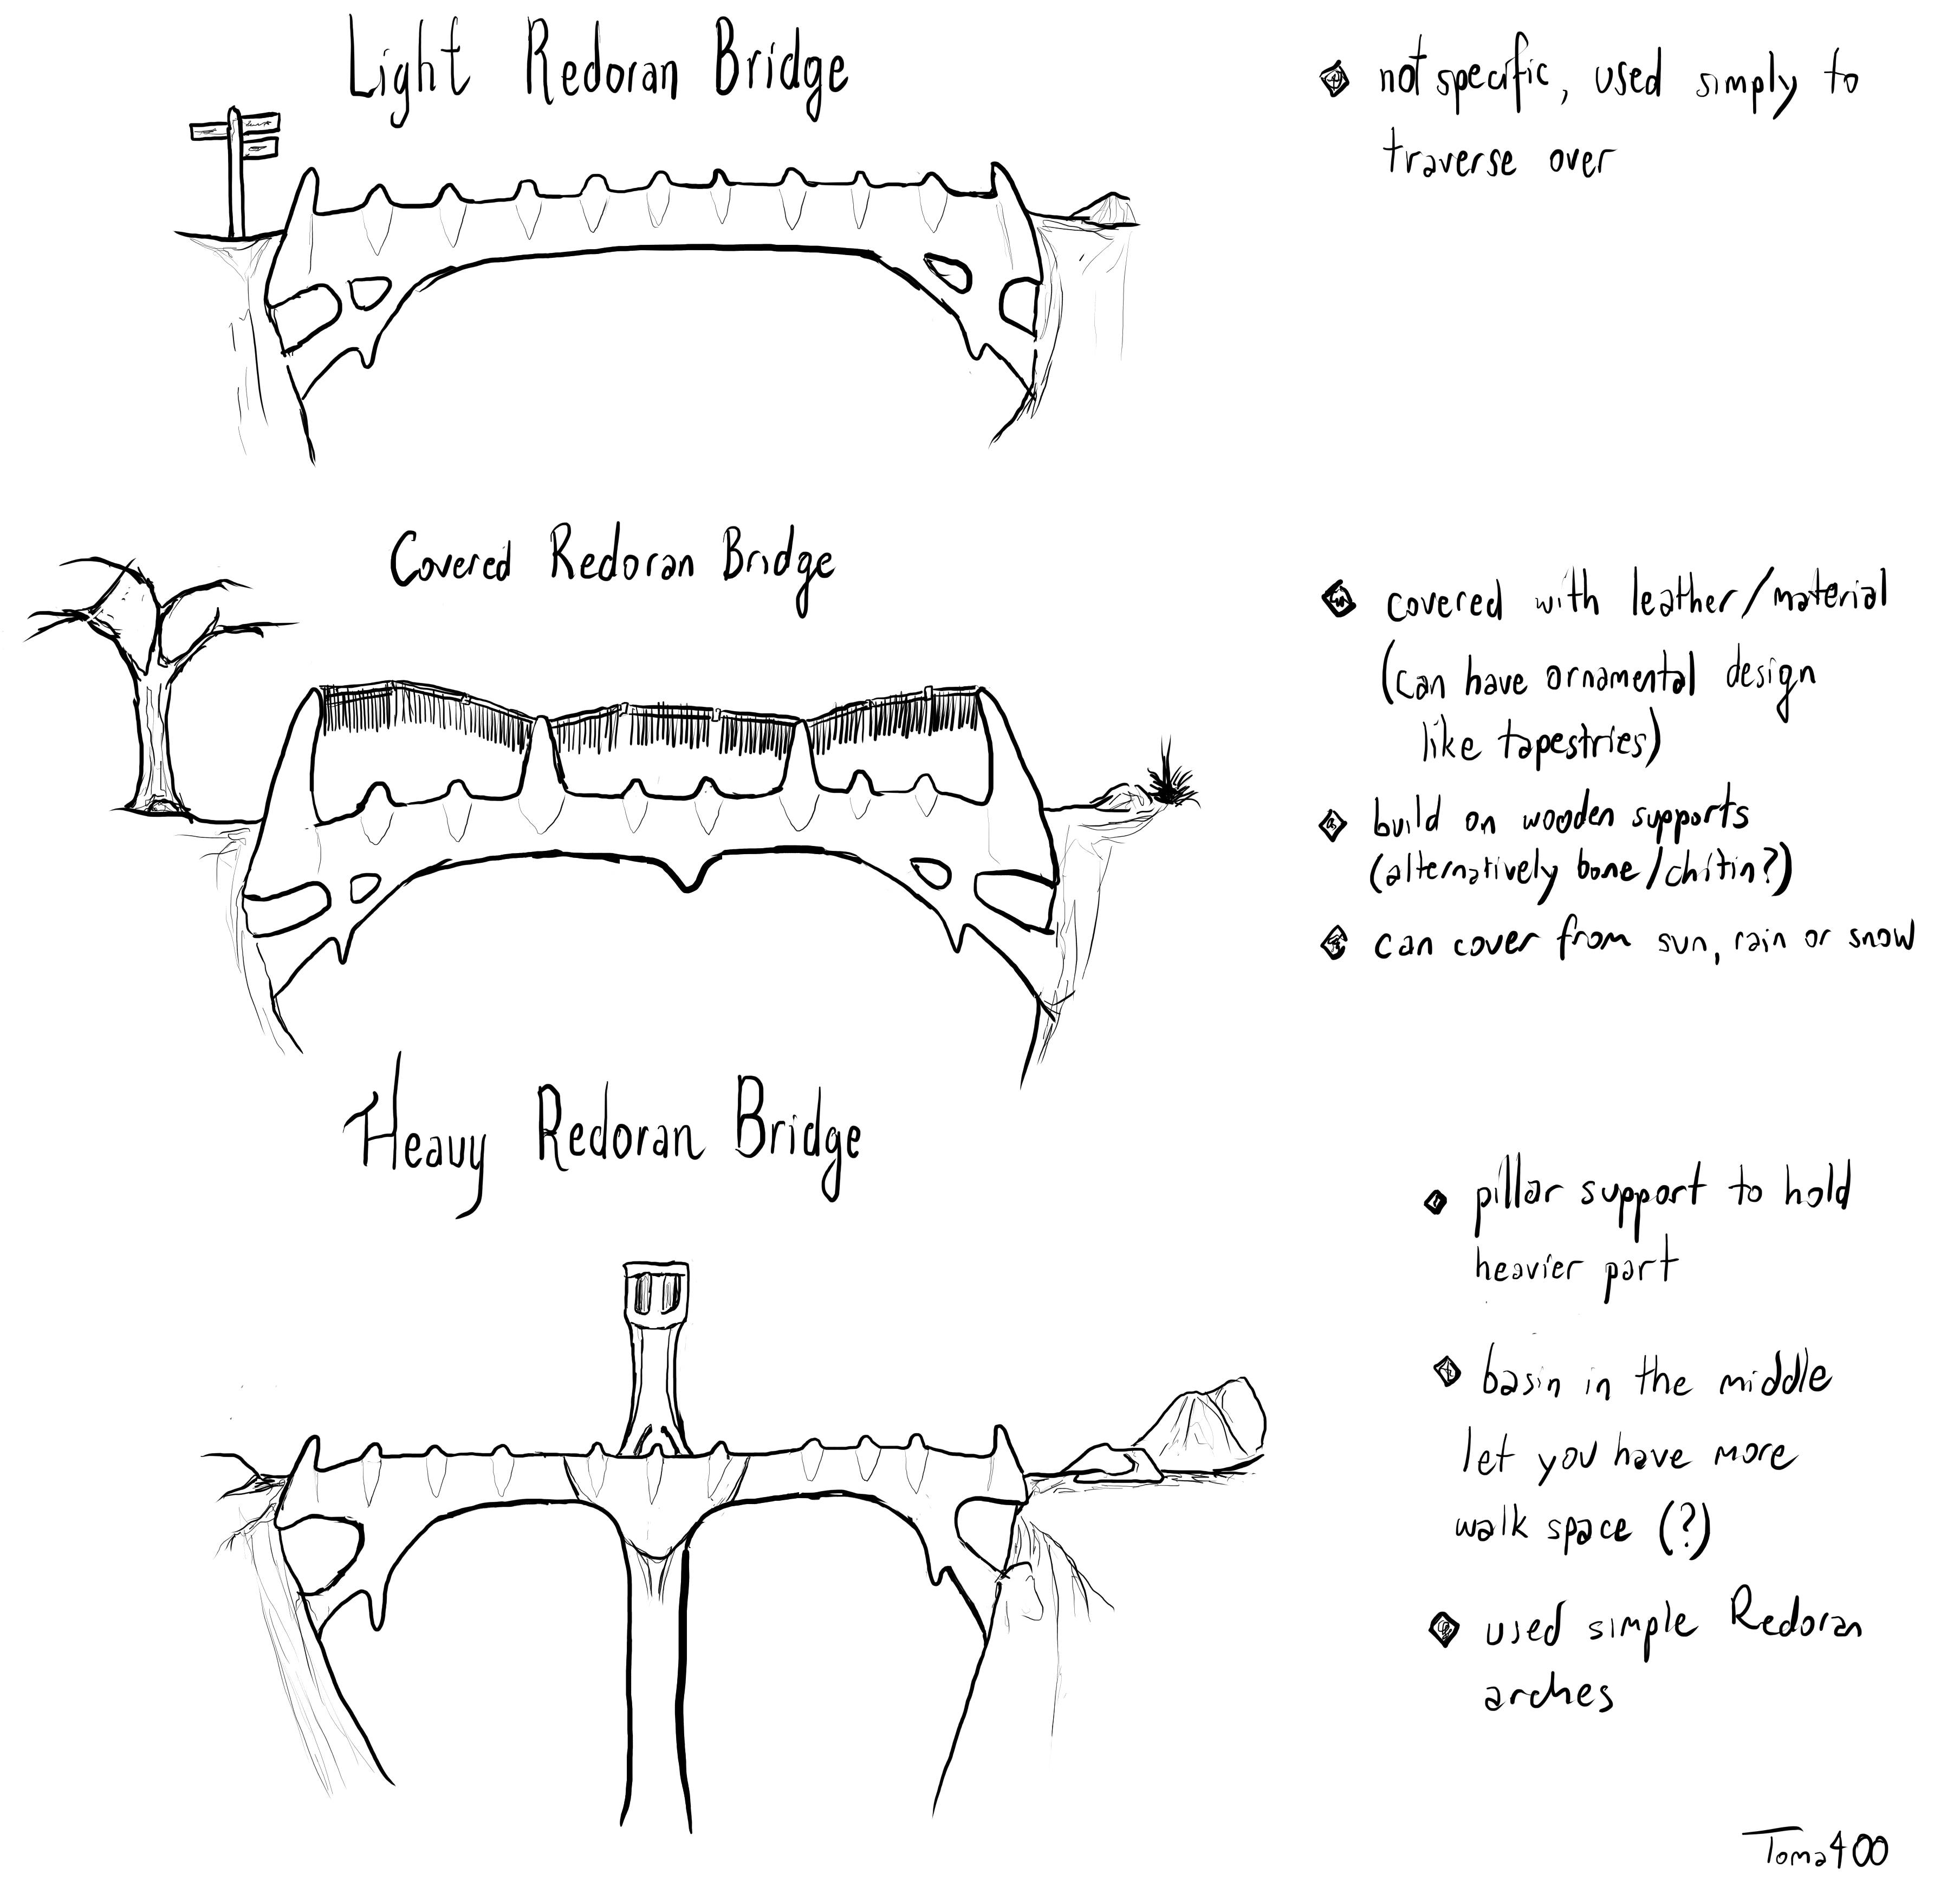 Light Redoran Bridge
not specific, used simply to
traverse over
Covered Redoran Bridge
covered with leather/material
(can have ornamental design
like tapestries)
build on wooden supports
(alternatively bone/chitin?)
can cover from sun, rain or snow
Heavy Redoran Bridge
pillar support to hold
heavier part
basin in the middle
let you have more
walk space (?)
used simple Redoran
arches
Toma400